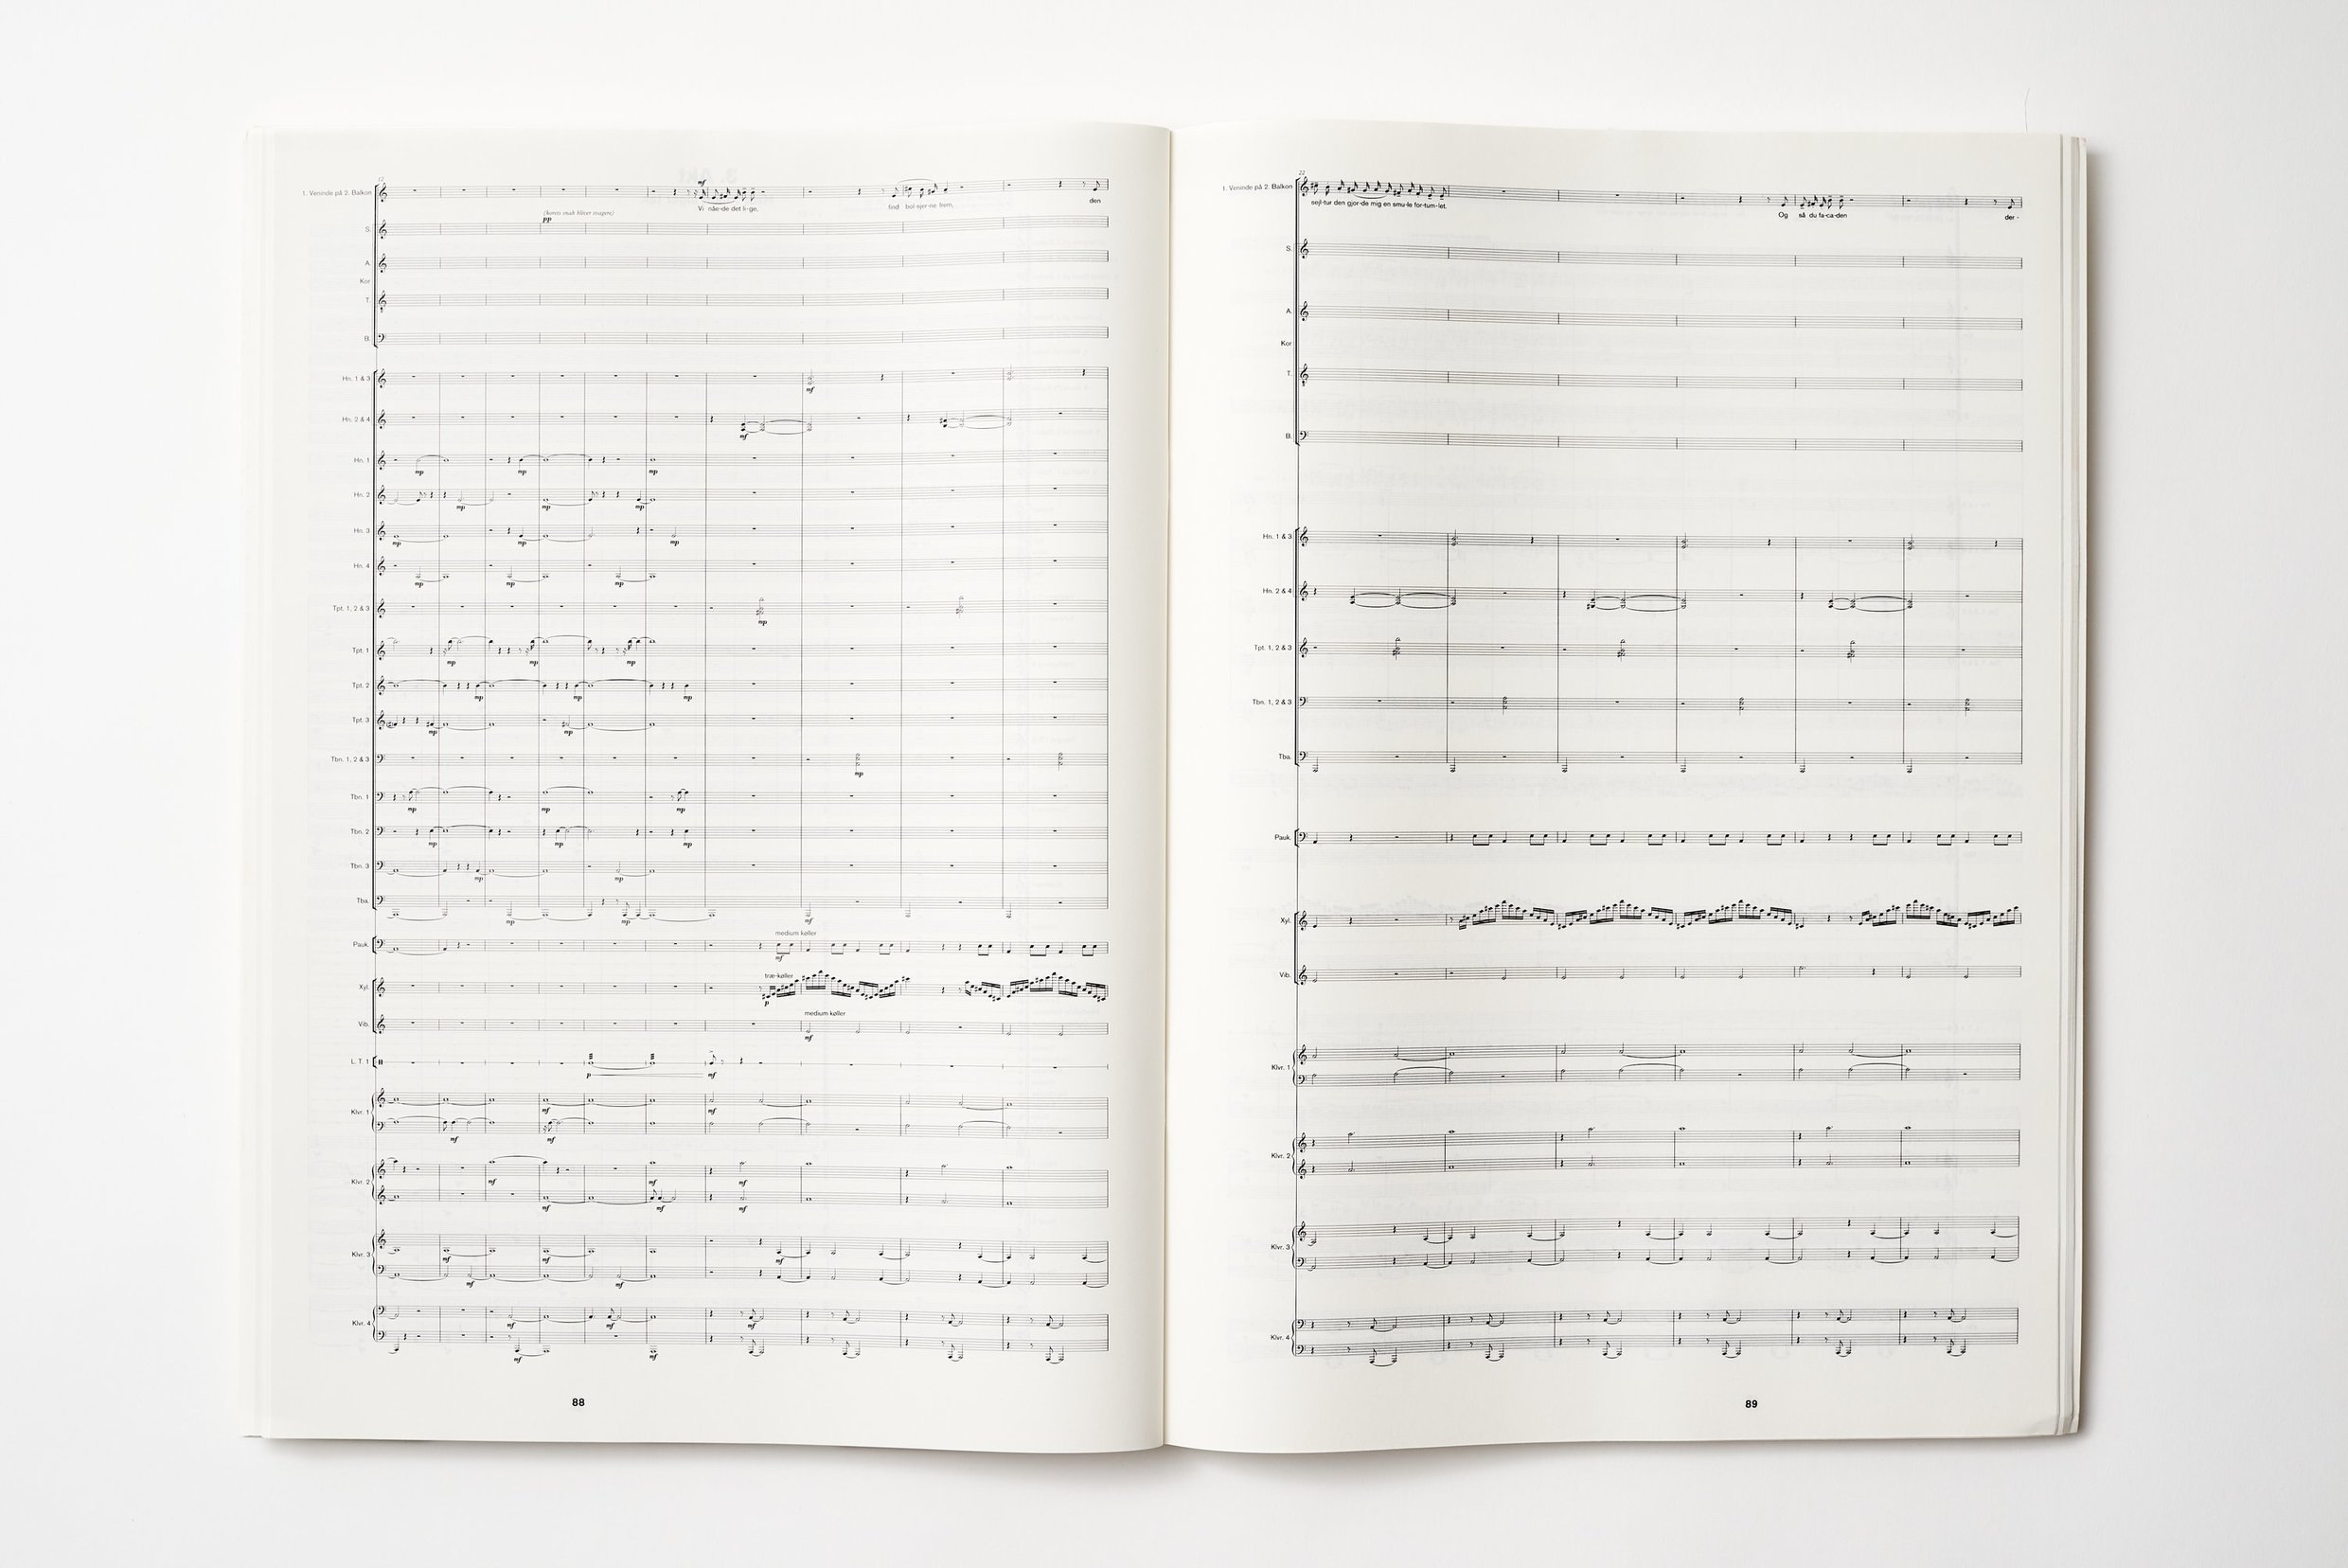 12
1. Veninde på 2. Balkon
mf
Vi nåe-de det li-ge,
find bol-sjer-ne frem,
den
(korets snak bliver svagere)
pp
S.
A.
Kor
T.
B.
Hn. 1 & 3
mf
Hn. 2 & 4
mf
Hn. 1
mp mp mp
Hn. 2
mp mp mp
Hn. 3
mp mp mp
Hn. 4
mp mp mp
Tpt. 1, 2 & 3
mp
Tpt. 1
mp mp mp
Tpt. 2
mp mp mp
Tpt. 3
mp mp
Tbn. 1, 2 & 3
mp
Tbn. 1
mp mp mp
Tbn. 2
mp mp mp
Tbn. 3
mp mp
Tba.
mp mp mf
medium køller
Pauk.
mf
træ-køller
Xyl.
p
medium køller
Vib.
mf
L.T. 1
p mf
Klvr. 1
mf mf
mf mf
Klvr. 2
mf mf mf
mf mf mf
Klvr. 3
mf mf mf
mf mf
Klvr. 4
mf mf mf
mf mf
88
22
1. Veninde på 2. Balkon
sejl-tur den gjor-de mig en smu-le for-tum-let.
Og så du fa-ca-den
der -
S.
A.
Kor
T.
B.
Hn. 1 & 3
Hn. 2 & 4
Tpt. 1, 2 & 3
Tbn. 1, 2 & 3
Tba.
Pauk.
Xyl.
Vib.
Klvr. 1
Klvr. 2
Klvr. 3
Klvr. 4
89